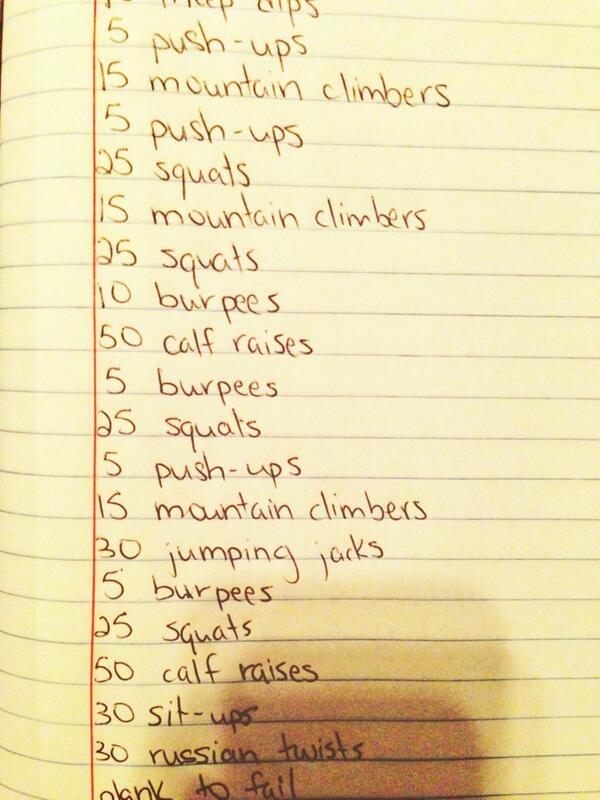 dips
5 push-ups
15 mountain climbers
5 push-ups
25 squats
15 mountain climbers
25 squats
10 burpees
50 calf raises
5 burpees
25 squats
5 push-ups
15 mountain climbers
30 jumping jacks
5 burpees
25 squats
50 calf raises
30 sit-ups
30 russian twists
plank to fail